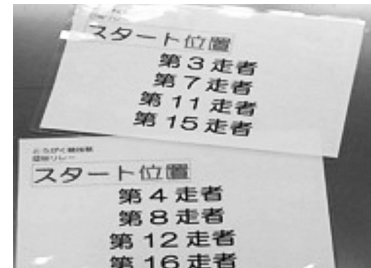 スタート位置
第3走者
第7走者
第11走者
第15走者
スタート位置
第4走者
第8走者
第12走者
第16走者